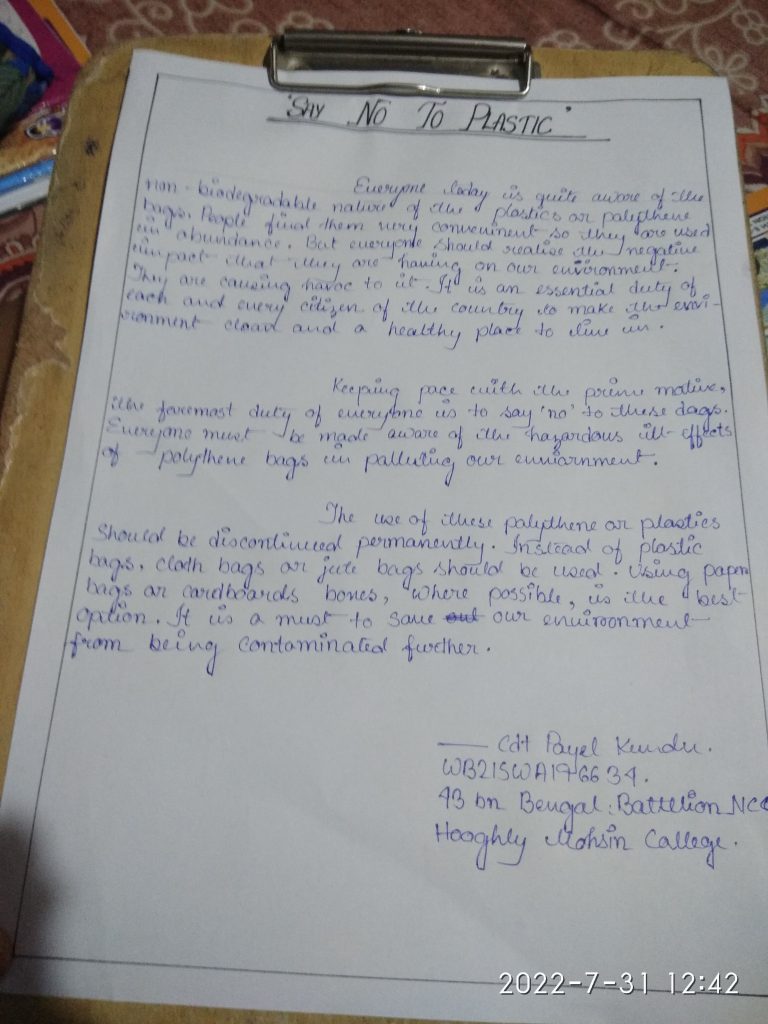 "SAY NO TO PLASTIC"
Everyone today is quite aware of the
non-biodegradable nature of the plastics or polythene
bags. People find them very convenient so they are used
in abundance. But everyone should realise the negative
impact that they are having on our environment.
They are causing havoc to it. It is an essential duty of
each and every citizen of the country to make the envi-
ronment clean and a healthy place to live in.
Keeping pace with the prime motive,
the foremost duty of everyone is to say 'no' to these bags.
Everyone must be made aware of the hazardous ill-effects
of polythene bags in polluting our enviornment.
The use of these polythene or plastics
should be discontinued permanently. Instead of plastic
bags, cloth bags or jute bags should be used. Using paper
bags or cardboards boxes, where possible, is the best
option. It is a must to save our environment
from being contaminated further.
— Cdt Payel Kundu.
43 bn Bengal Battelion NCC
Hooghly Mohsin College.
2022-7-31 12:42